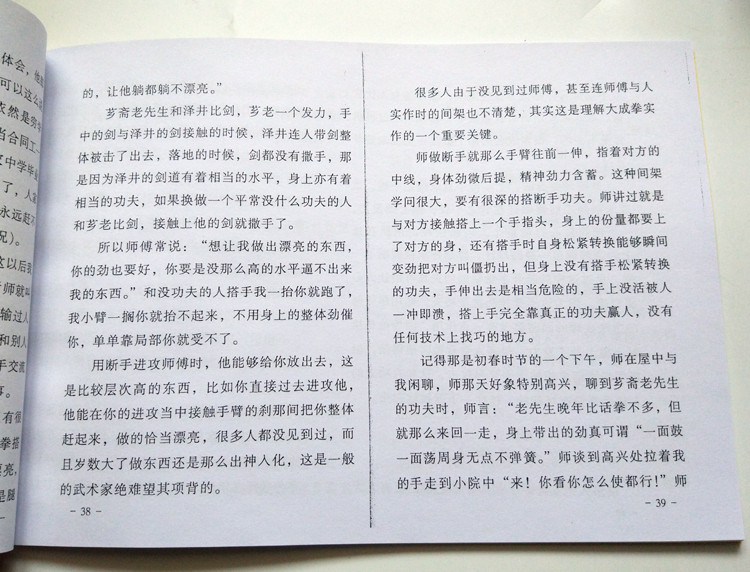 体会，他
可以这么
依然是
当合同工
中学毕
了，人
永远赶
况）。
这以后我
师就叫
输过人
和别人
手交流
事。
有很
拳搭
漂亮，
是腿
的，让他躺都躺不漂亮。”
芗斋老先生和泽井比剑，芗老一个发力，手
中的剑与泽井的剑接触的时候，泽井连人带剑整
体被击了出去，落地的时候，剑都没有撒手，那
是因为泽井的剑道有着相当的水平，身上亦有着
相当的功夫，如果换做一个平常没什么功夫的人
和芗老比剑，接触上他的剑就撒手了。
所以师傅常说：“想让我做出漂亮的东西，
你的劲也要好，你要是没那么高的水平逼不出来
我的东西。”和没功夫的人搭手我一抬你就跑了，
我小臂一搁你就抬不起来，不用身上的整体劲催
你，单单靠局部你就受不了。
用断手进攻师傅时，他能够给你放出去，这
是比较层次高的东西，比如你直接过去进攻他，
他能在你的进攻当中接触手臂的刹那间把你整体
赶起来，做的恰当漂亮，很多人都没见到过，而
且岁数大了做东西还是那么出神入化，这是一般
的武术家绝难望其项背的。
- 38 -
很多人由于没见到过师傅，甚至连师傅与人
实作时的间架也不清楚，其实这是理解大成拳实
作的一个重要关键。
师做断手就那么手臂往前一伸，指着对方的
中线，身体劲微后提，精神劲力含蓄。这种间架
学问很大，要有很深的搭断手功夫。师讲过就是
与对方接触搭上一个手指头，身上的份量都要上
了对方的身，还有搭手时自身松紧转换能够瞬间
变劲把对方叫僵扔出，但身上没有搭手松紧转换
的功夫，手伸出去是相当危险的，手上没活被人
一冲即溃，搭上手完全靠真正的功夫赢人，没有
任何技术上找巧的地方。
记得那是初春时节的一个下午，师在屋中与
我闲聊，师那天好象特别高兴，聊到芗斋老先生
的功夫时，师言：“老先生晚年比话拳不多，但
就那么来回一走，身上带出的劲真可谓“一面鼓
一面荡周身无点不弹簧。”师谈到高兴处拉着我
的手走到小院中“来！你看你怎么使都行！”师
- 39 -